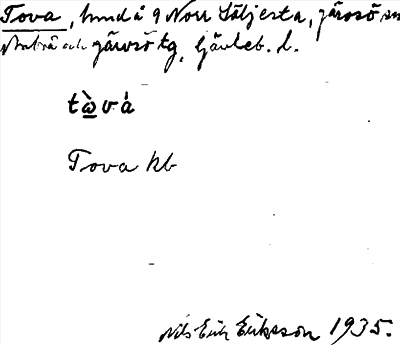 Tova, hmd å 9 Norr Säljesta, Järvsö sn
och Järvsö tg, Gävleb. l.
tὼ̲vá
Tova kb
Nils Erik Eriksson 1935.